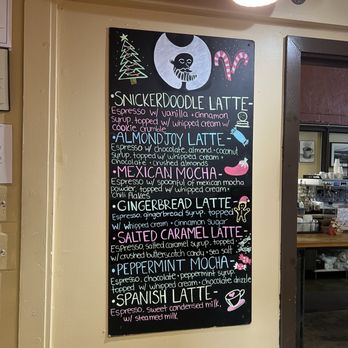 •SNICKERDOODLE LATTE-
Espresso w/ vanilla + cinnamon
syrup. topped w/ whipped cream w/
cookie crumble
•ALMONDJOY LATTE-
Espresso w/ chocolate, almond, + coconut
syrup. topped w/ whipped cream +
chocolate + crushed almonds
•MEXICAN MOCHA-
Espresso w/ spoonful of mexican mocha
powder. topped w/ whipped cream +
chili flakes
•GINGERBREAD LATTE-
Espresso, gingerbread syrup. topped
w/ whipped cream + cinnamon sugar
•SALTED CARAMEL LATTE-
Espresso, salted caramel syrup. topped
w/ crushed butterscotch candy + sea salt
•PEPPERMINT MOCHA-
Espresso, chocolate + peppermint syrup.
topped w/ whipped cream + chocolate drizzle
•SPANISH LATTE-
Espresso, sweet condensed milk,
w/ steamed milk